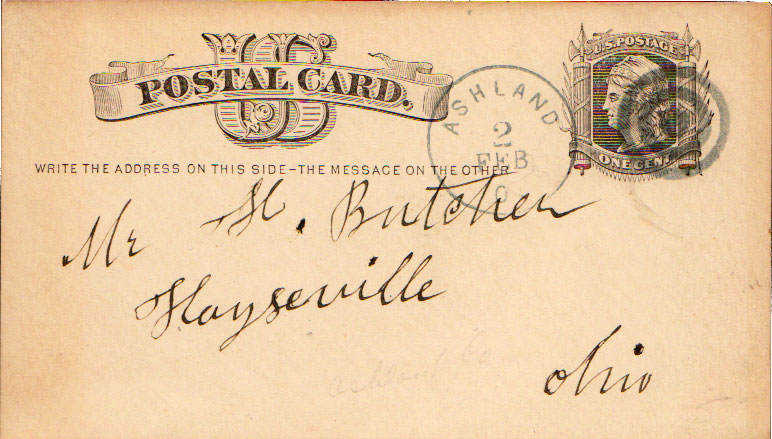 US
POSTAL CARD.
U.S. POSTAGE
ONE CENT
ASHLAND
2
FEB
O
WRITE THE ADDRESS ON THIS SIDE-THE MESSAGE ON THE OTHER
Mr H. Butcher
Hayseville
Ohio
Ashland Co